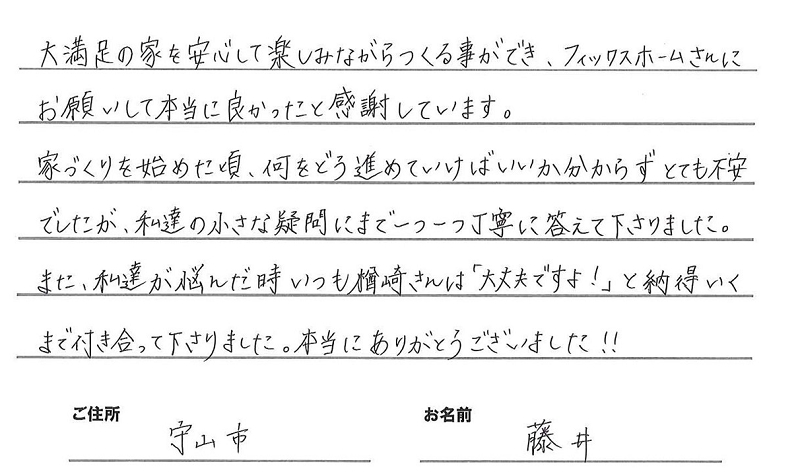 大満足の家を安心して楽しみながらつくる事ができ、フィックスホームさんに
お願いして本当に良かったと感謝しています。
家づくりを始めた頃、何をどう進めていけばいいか分からずとても不安
でしたが、私達の小さな疑問にまで一つ一つ丁寧に答えて下さりました。
また、私達が悩んだ時いつも楢崎さんは「大丈夫ですよ！」と納得いく
まで付き合って下さりました。本当にありがとうございました!!
ご住所 守山市 お名前 藤井